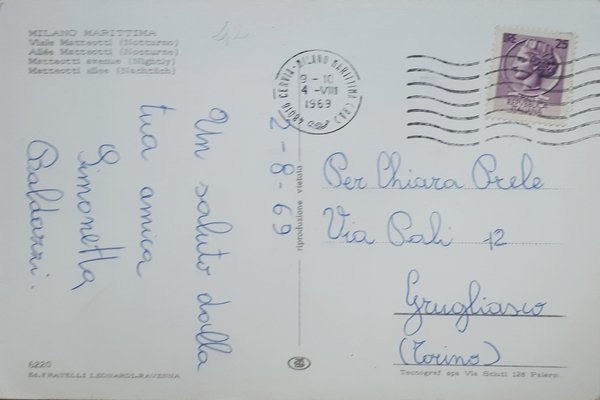 MILANO MARITTIMA
Viale Matteotti (Notturno)
Allée Matteotti (Nocturne)
Matteotti avenue (Nightly)
Matteotti allee (Nachtlich)
42
48016 CERVIA-MILANO MARITTIMA (RA)
9-10
4-VIII
1969
25
Un saluto dalla
tua amica
Simonetta
Baldazzi.
2-8-69
riproduzione vietata
Per Chiara Prele
Via Pali 12
Grugliasco
(Torino)
6220
Ed. FRATELLI LEONARDI-RAVENNA
Tecnograf spa Via Sciuti 128 Palermo.